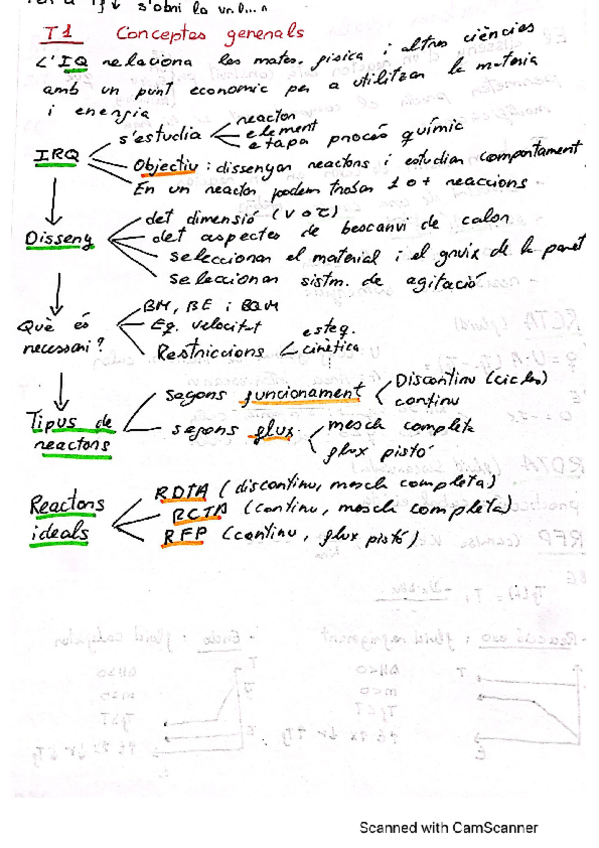 s'obri la
T1 Conceptes generals
L'IQ relaciona les mates, física i altres ciències
amb un punt economic per a utilitzar la matèria
i energia
IRQ
s'estudia
reactor
element
etapa procés químic
Objectiu : dissenyar reactors i estudiar comportament
En un reactor podem trobar 1 o + reaccions
Disseny
det dimensió (V o τ)
det aspectes de bescanvi de calor
seleccionar el material i el gruix de la paret
seleccionar sistm. de agitació
Què és
necessari?
BM, BE i BQM
Eq. velocitat
Restriccions
esteq.
cinètica
Tipus de
reactors
segons funcionament
Discontinu (cicles)
continu
segons flux
mescla completa
flux pistó
Reactors
ideals
RDTA (discontinu, mescla completa)
RCTA (continu, mescla completa)
RFP (continu, flux pistó)
Scanned with CamScanner